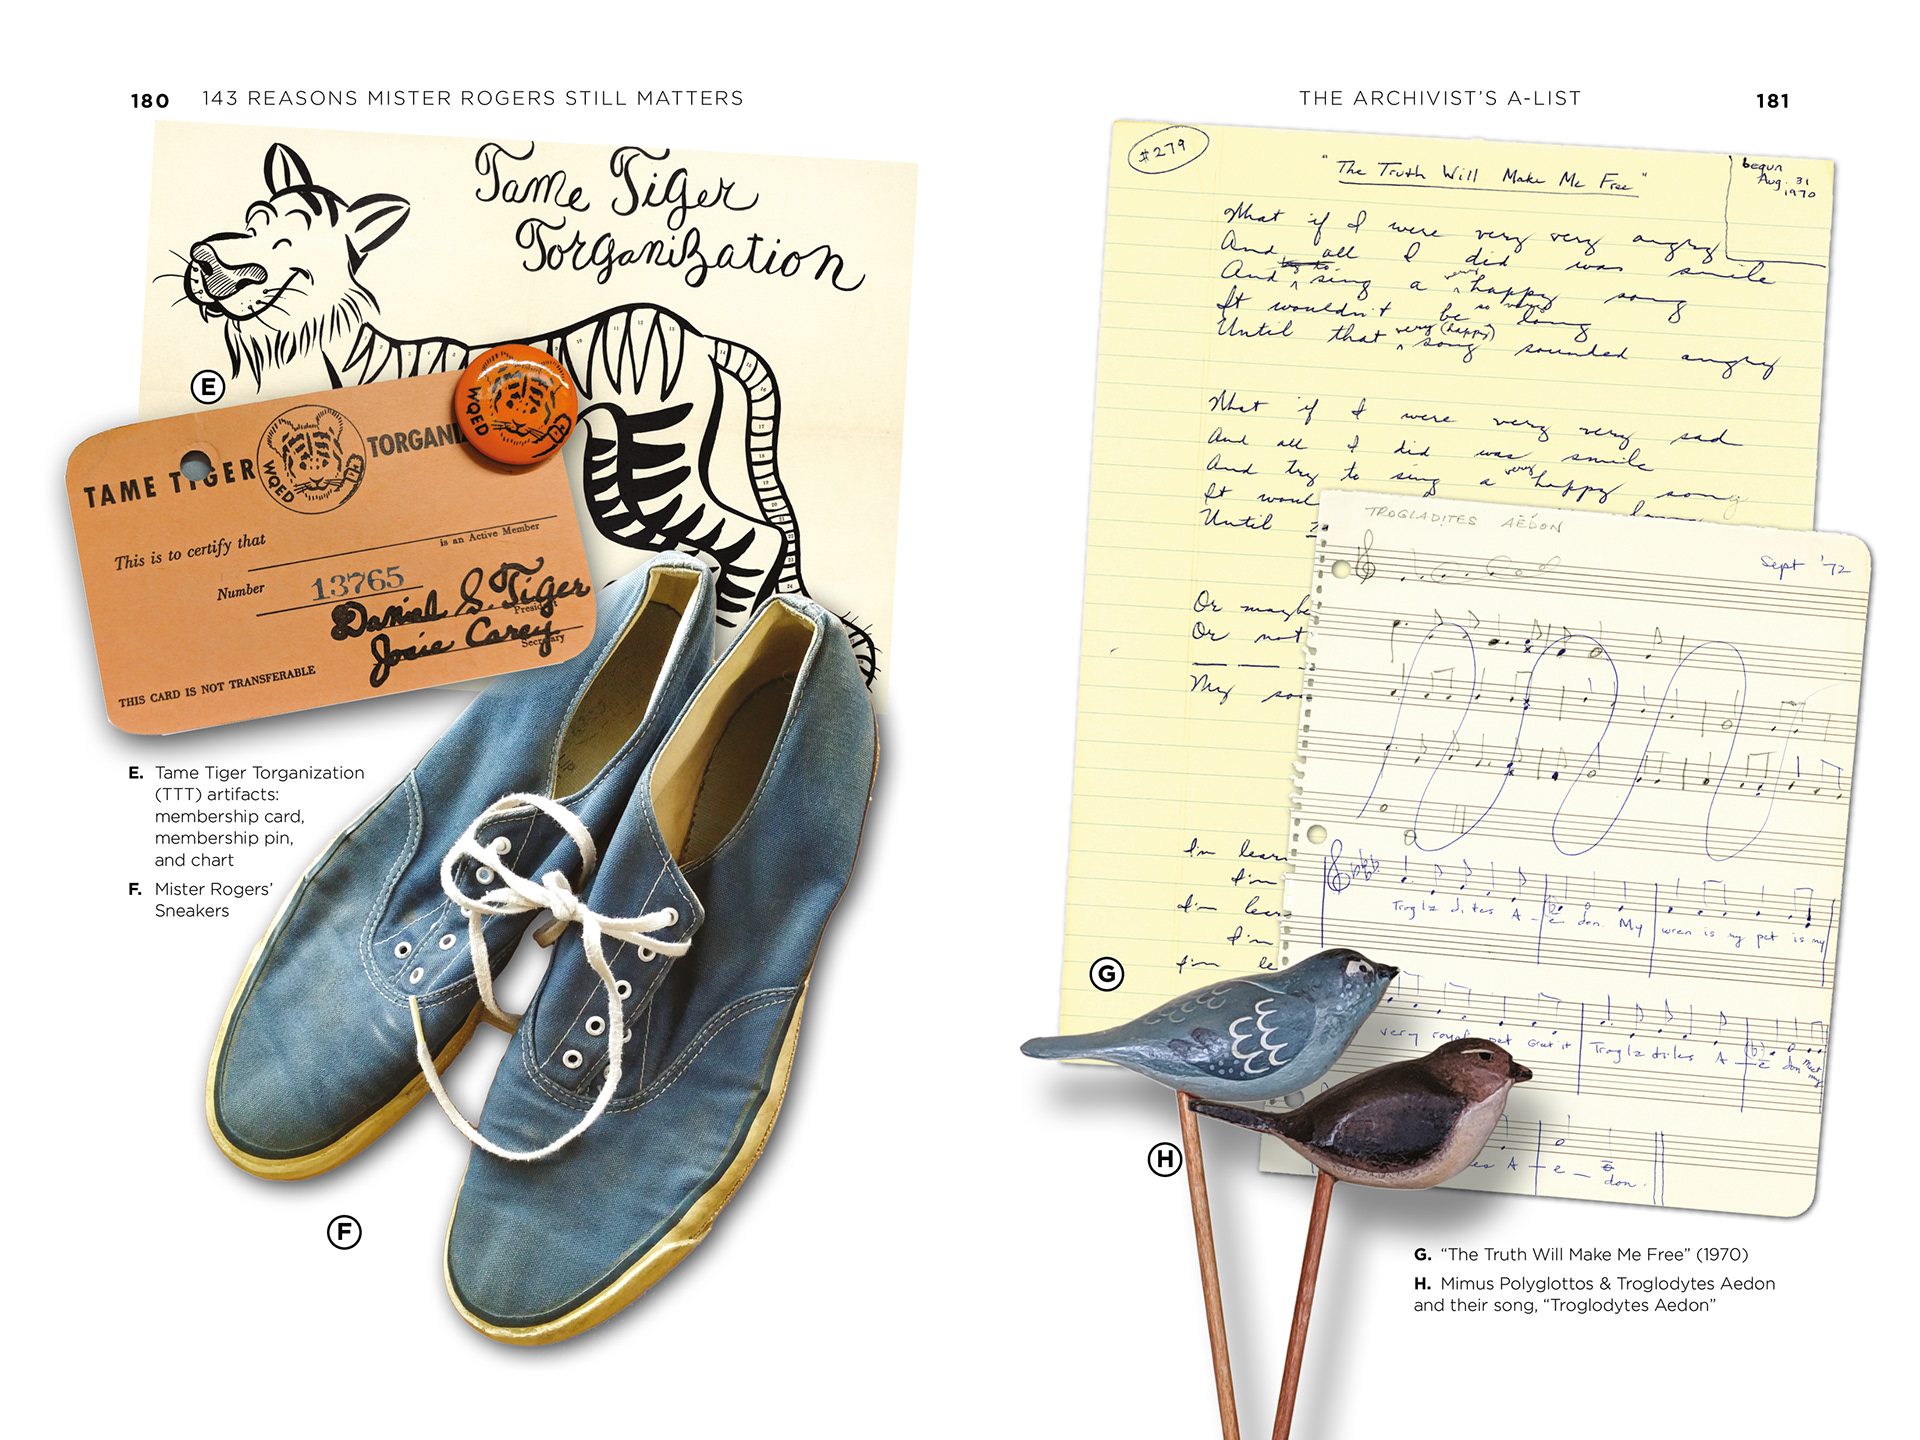 180 143 REASONS MISTER ROGERS STILL MATTERS
Tame Tiger
Torganization
E
WQED
TAME TIGER
WQED
TORGANI
This is to certify that
is an Active Member
Number 13765
Daniel S. Tiger
President
Josie Carey
Secretary
THIS CARD IS NOT TRANSFERABLE
E. Tame Tiger Torganization
(TTT) artifacts:
membership card,
membership pin,
and chart
F. Mister Rogers'
Sneakers
F
THE ARCHIVIST'S A-LIST 181
#279
"The Truth Will Make Me Free"
begun
Aug. 31
1970
What if I were very very angry
And all I did was smile
And sing a very happy song
It wouldn't be so very long
Until that very (happy) song sounded angry
What if I were very very sad
And all I did was smile
And try to sing a very happy song
It woul
Until
Or maybe
Or not
My so
I'm learn
I'm
I'm lear
I'm
I'm le
TROGLADITES AEDON
Sept '72
Troglo dites A - e don. My wren is my pet is my
very royal pet Great it Troglo dites A - e don
A - e - don.
G
H
G. "The Truth Will Make Me Free" (1970)
H. Mimus Polyglottos & Troglodytes Aedon
and their song, "Troglodytes Aedon"